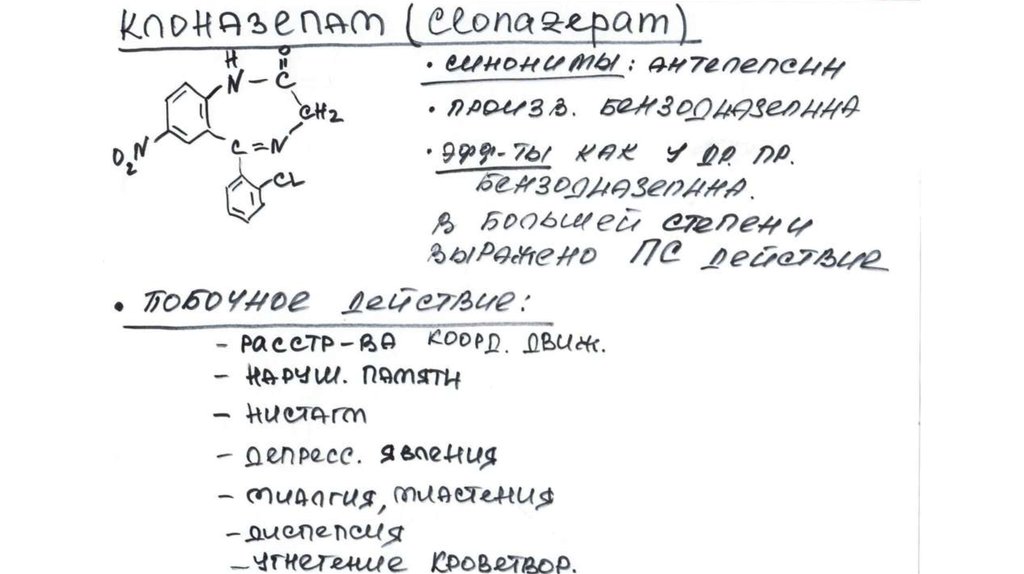 КЛОНАЗЕПАМ (Clonazepam)
H
O
N – C
CH2
C=N
O2N
CL
• СИНОНИМЫ: АНТЕЛЕПСИН
• ПРОИЗВ. БЕНЗОДИАЗЕПИНА
• ЭФФ-ТЫ КАК У ДР. ПР.
БЕНЗОДИАЗЕПИНА.
В БОЛЬШЕЙ СТЕПЕНИ
ВЫРАЖЕНО ПС ДЕЙСТВИЕ
• ПОБОЧНОЕ ДЕЙСТВИЕ:
– РАССТР-ВА КООРД. ДВИЖ.
– НАРУШ. ПАМЯТИ
– НИСТАГМ
– ДЕПРЕСС. ЯВЛЕНИЯ
– МИАЛГИЯ, МИАСТЕНИЯ
– ДИСПЕПСИЯ
– УГНЕТЕНИЕ КРОВЕТВОР.